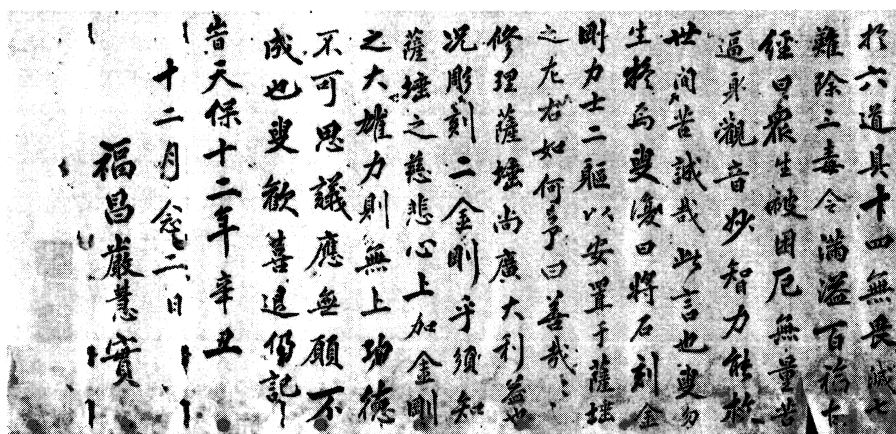 於六道具十四無畏滅七
難除三毒令満溢百福故
經曰衆生被困厄無量苦
逼身觀音妙智力能救
世間苦誠哉此言也叟勿
生疑焉叟復曰將石刻金
剛力士二軀以安置于薩埵
之左右如何予曰善哉〻〻
修理薩埵尚廣大利益也
况彫刻二金剛乎須知
薩埵之慈悲心上加金剛
之大雄力則無上功德
不可思議應無願不
成也叟歡善退仍記
旹天保十二年辛丑
十二月念二日
福昌嚴慧實